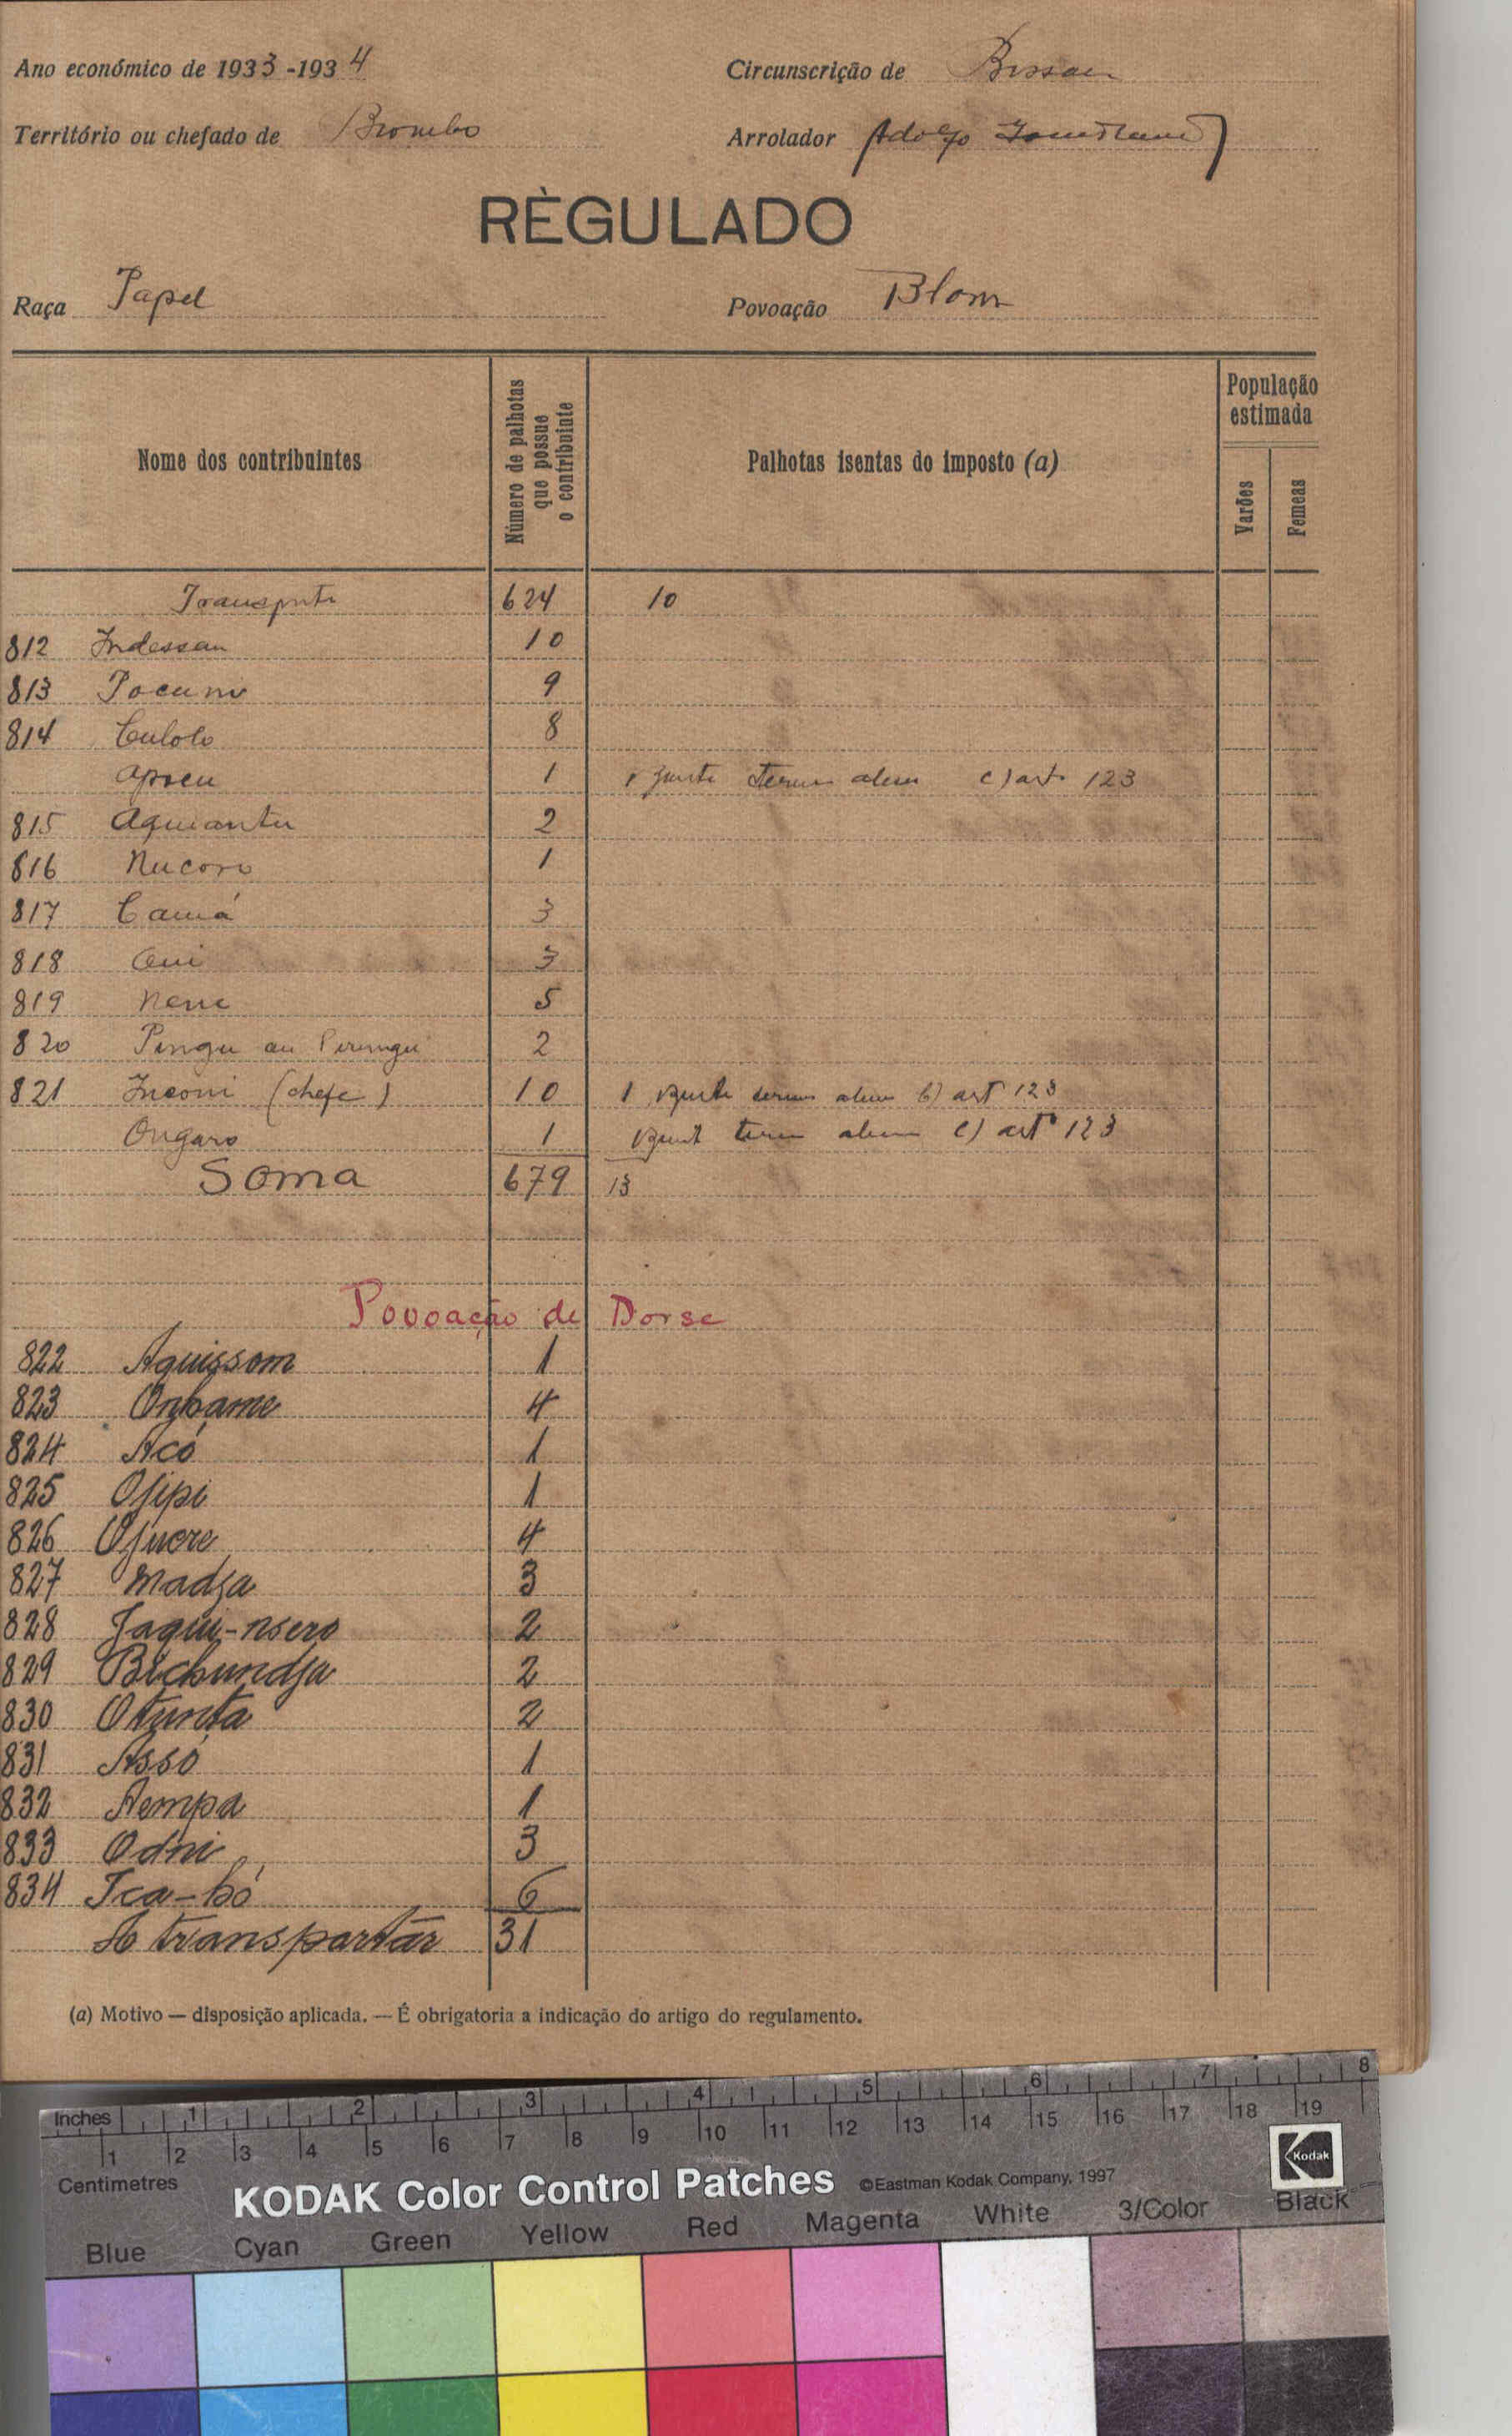 Ano económico de 1933-1934 Circunscrição de Bissau
Território ou chefado de Biombo Arrolador Adolfo
RÈGULADO
Raça Papel Povoação Blom
Nome dos contribuintes
Número de palhotas que possue o contribuinte
Palhotas isentas do imposto (a)
População estimada
Varões
Femeas
Transporte 624 10
812 Indessau 10
813 Pocumo 9
814 Culolo 8
Apoeu 1 1 c) art. 123
815 Aquiantu 2
816 Nucoro 1
817 Camá 3
818 3
819 Nene 5
820 Pingu ou Pirungu 2
821 Inconi (chefe) 10 1 b) art 123
Ongaro 1 c) artº 123
Soma 679 13
Povoação de Dorse
822 Aquissom 1
823 Onhame 4
824 Acó 1
825 Ojipi 1
826 Ojucre 4
827 Madja 3
828 Jaqui-nsero 2
829 Bichundja 2
830 Otunta 2
831 Assó 1
832 Aempa 1
833 Odni 3
834 Ica-bó 6
A transportar 31
(a) Motivo — disposição aplicada. — É obrigatoria a indicação do artigo do regulamento.
Inches 1 2 3 4 5 6 7 8
1 2 3 4 5 6 7 8 9 10 11 12 13 14 15 16 17 18 19
Centimetres
KODAK Color Control Patches ©Eastman Kodak Company, 1997 Kodak
Blue Cyan Green Yellow Red Magenta White 3/Color Black